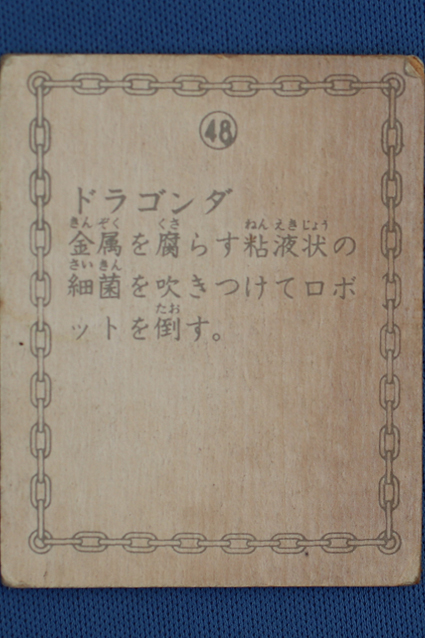 48
ドラゴンダ
きんぞく くさ ねんえきじょう
金属を腐らす粘液状の
さいきん
細菌を吹きつけてロボ
たお
ットを倒す。